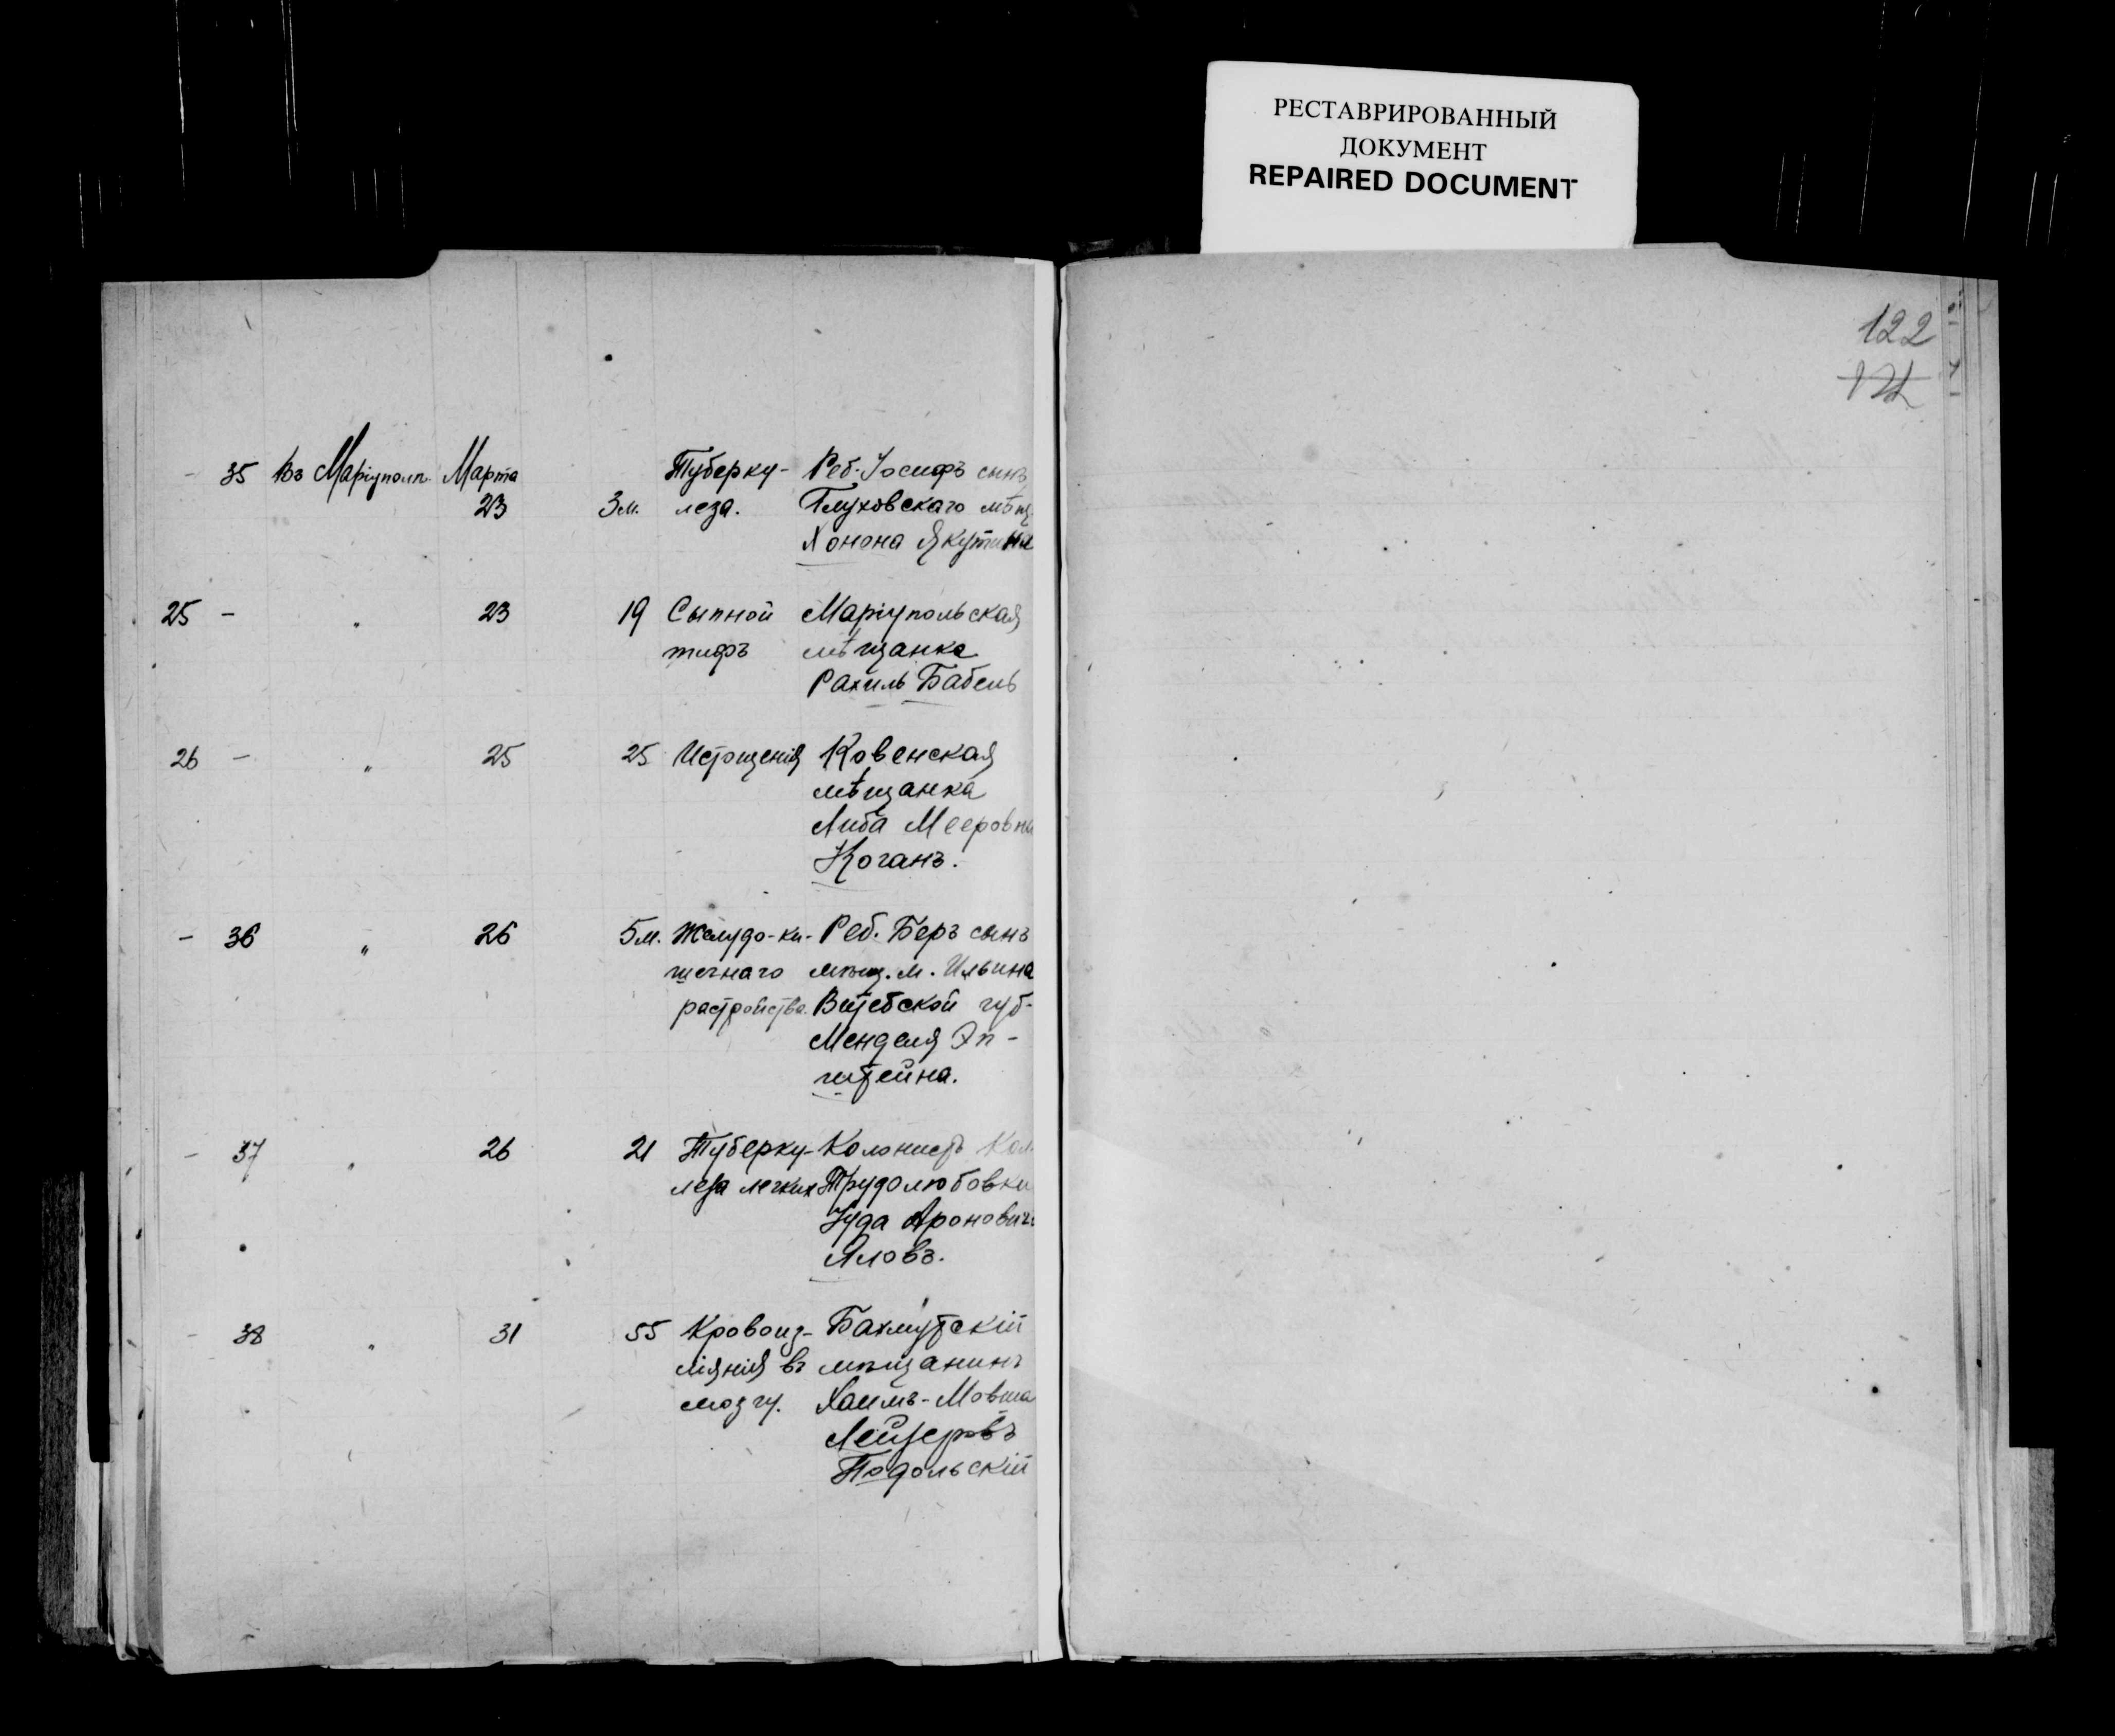 РЕСТАВРИРОВАННЫЙ
ДОКУМЕНТ
REPAIRED DOCUMENT
122
- 35 Въ Маріупол. Марта Туберку- Реб. Іосифъ сынъ
23 3м. леза. Глуховскаго мѣщ.
Хонона Якутина
25 - " 23 19 Сыпной Маріупольская
тифъ мѣщанка
Рахиль Бабель
26 - " 25 25 Истощенія Ковенская
мѣщанка
Либа Мееровна
Коганъ.
- 36 " 26 5м. Желудо-ки- Реб. Беръ сынъ
шечнаго мѣщ. м. Ильина
растройства. Витебской губ-
Менделя Эп-
штейна.
- 37 " 26 21 Туберку- Колонистъ Кол.
леза легких Трудолюбовки
Іуда Ароновичъ
Яловъ.
- 38 " 31 55 Кровоиз- Бахмутскій
ліянія въ мѣщанинъ
мозгу. Хаимъ-Мовша
Лейзеровъ
Подольскій